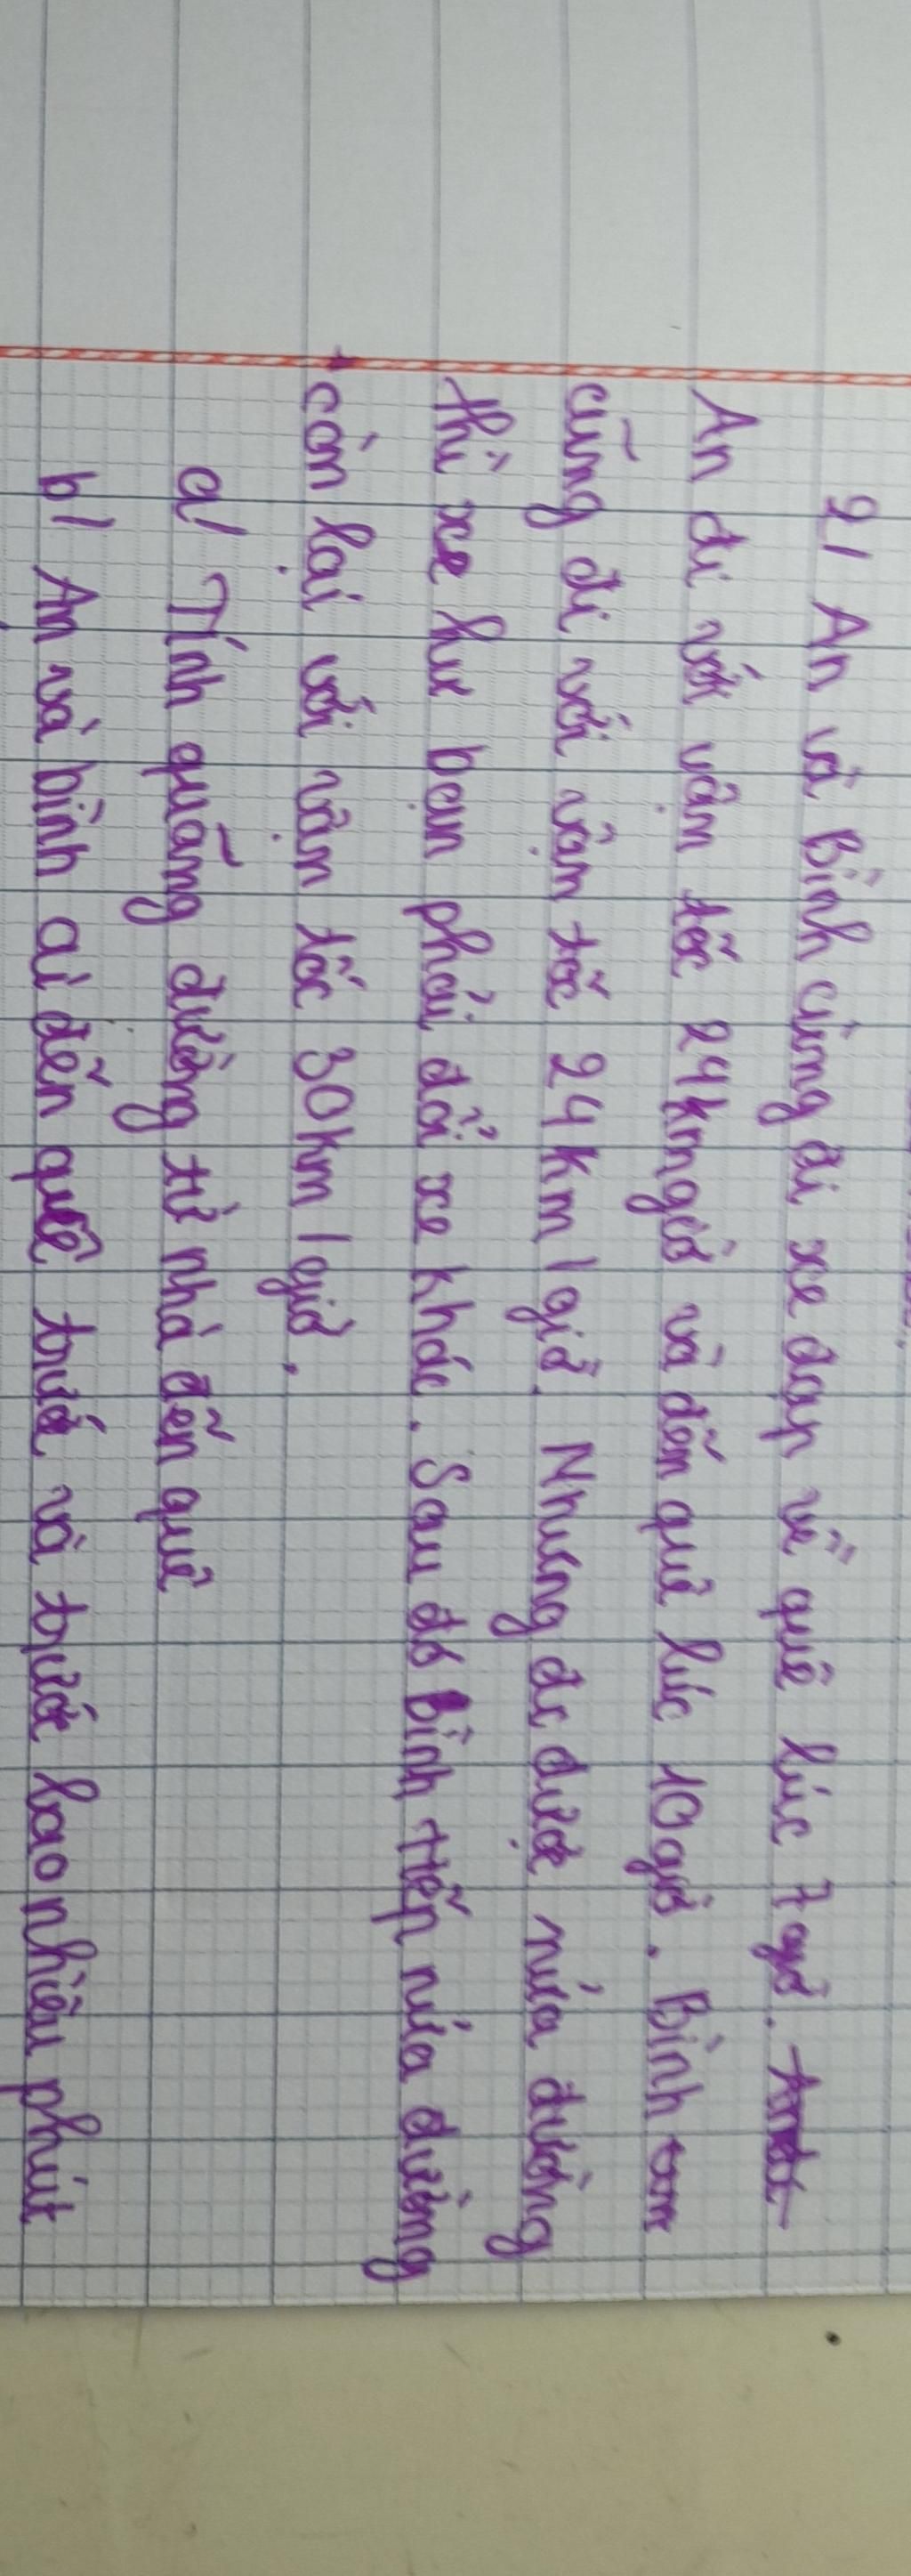 2/ An và Bình cùng đi xe đạp về quê lúc 7 giờ.
An đi với vận tốc 24km giờ và đến quê lúc 10 giờ. Bình
cũng đi với vận tốc 24 km / giờ. Nhưng đi được nửa đường
thì xe hư bạn phải đổi xe khác. Sau đó Bình tiếp nửa đường
còn lại với vận tốc 30km / giờ.
a/ Tính quãng đường từ nhà đến quê
b/ An và bình ai đến quê trước và trước bao nhiêu phút